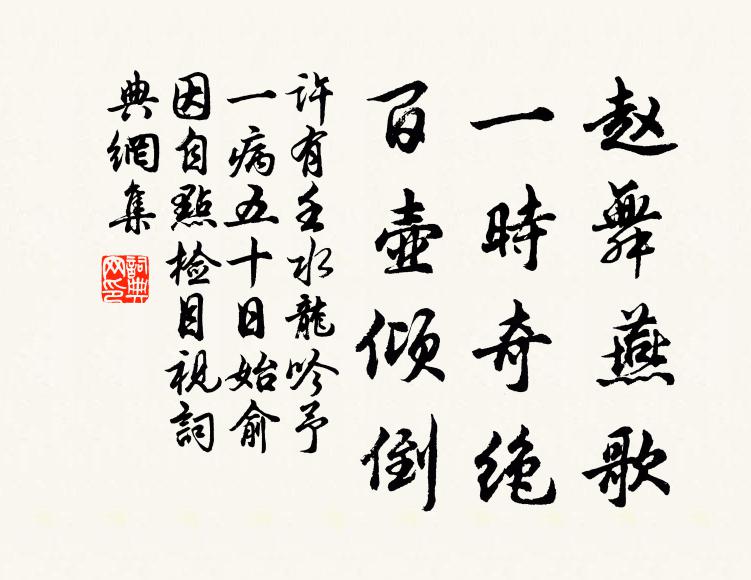 赵舞燕歌
一時奇绝
百壺倾倒
許有壬水龍吟予
一病五十日始俞
因自點检目視詞
典網集
詞典网印